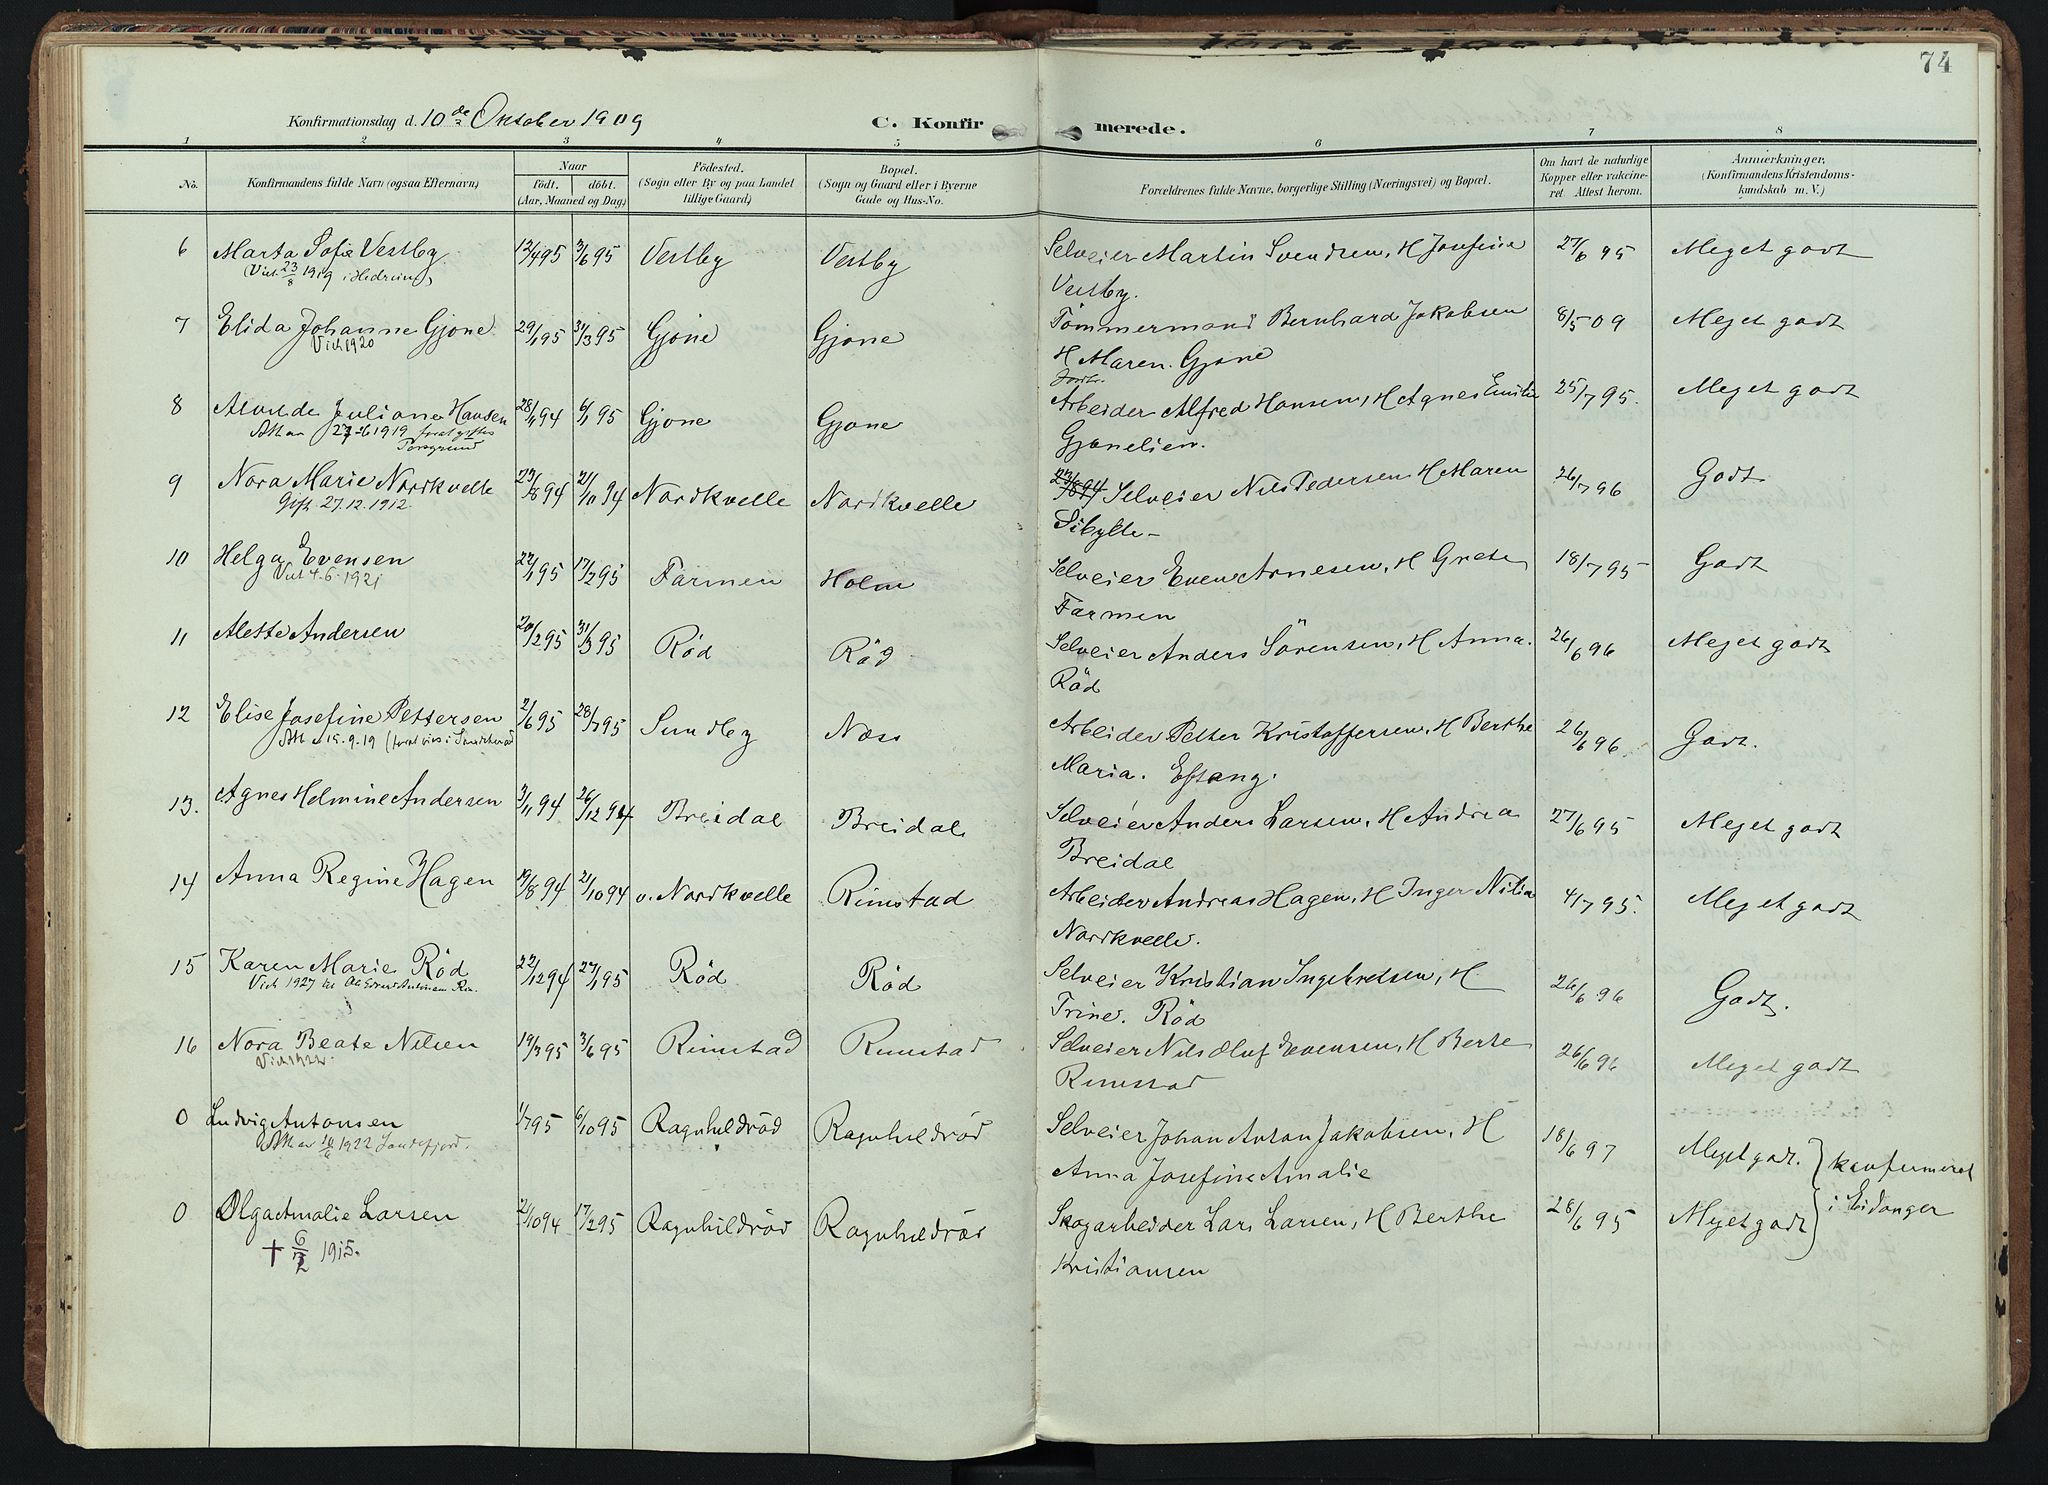 74
Konfirmationsdag d. 10de Oktober 1909 C. Konfirmerede.
1 2 3 4 5 6 7 8
No. Konfirmandens fulde Navn (ogsaa Efternavn) Naar födt. döbt. (Aar, Maaned og Dag) Födested. (Sogn eller By og paa Landet tillige Gaard) Bopæl. (Sogn og Gaard eller i Byerne Gade og Hus-No. Forældrenes fulde Navne, borgerlige Stilling (Næringsvei) og Bopæl. Om havt de naturlige Kopper eller vakcineret. Attest herom. Anmærkninger, (Konfirmandens Kristendomskundskab m. V.)
6 Marta Sofie Vestby 12/4 95 3/6 95 Vestby Vestby Selveier Martin Svendsen, H Josefine 27/6 95 Meget godt
(Viet 23/8 1919 i Hedrum) Vestby.
7 Elida Johanne Gjone 29/1 95 31/3 95 Gjone Gjone Tömmermand Bernhard Jakobsen 8/5 09 Meget godt
Viet 1920 H Maren. Gjone
8 Juliane Hansen 28/11 94 6/1 95 Gjone Gjone Arbeider Alfred Hansen, H Agnes Emilie 25/7 95. Meget godt
1919 Gjonelien.
9 Nora Marie Nordkvelle 23/8 94 21/10 94 Nordkvelle Nordkvelle 23/8 94 Selveier Nils Pedersen H Maren 26/7 96 Godt
Gift 27.12.1912 Sibylle
10 Helga Evensen 22/1 95 17/2 95 Farmen Holm Selveier Even Arnesen, H Grete 18/7 95 Godt
Viet 4.6.1921 Farmen
11 Alette Andersen 20/2 95 31/3 95 Röd Röd Selveier Anders Sörensen, H Anna. 26/6 96 Meget godt
Röd
12 Elise Josefine Pettersen 2/6 95 28/7 95 Sundby Næss Arbeider Petter Kristoffersen, H Berthe 26/6 96. Godt.
15-9-19 Maria. Eftang.
13. Agnes Helmine Andersen 3/11 94 26/12 94 Breidal Breidal Selveier Anders Larsen, H Andrea 27/6 95 Meget godt
Breidal
14 Anna Regine Hagen 19/8 94 21/10 94 v. Nordkvelle Rimstad Arbeider Andreas Hagen, H Inger Nilia 4/7 95. Meget godt
Nordkvelle.
15 Karen Marie Röd 22/12 94 27/1 95 Röd Röd Selveier Kristian Ingebretsen, H 26/6 96 Godt.
Viet 1927 Trine. Röd
16 Nora Beate Nilsen 19/3 95 3/6 95 Rimstad Rimstad Selveier Nils Oluf Evensen, H Berte 26/6 96 Meget godt
Viet 1922 Rimstad
0 Ludvig Antonsen 1/7 95 6/10 95 Ragnhildröd Ragnhildröd Selveier Johan Anton Jakobsen, H 18/6 97 Meget godt. konfirmeret
1922 Sandefjord. Anna Josefine Amalie
0 Olga Amalie Larsen 21/10 94 17/2 95 Ragnhildröd Ragnhildröd Skogarbeider Lars Larsen, H Berthe 28/6 95 Meget godt i Eidanger
† 6/12 1915. Kristiansen